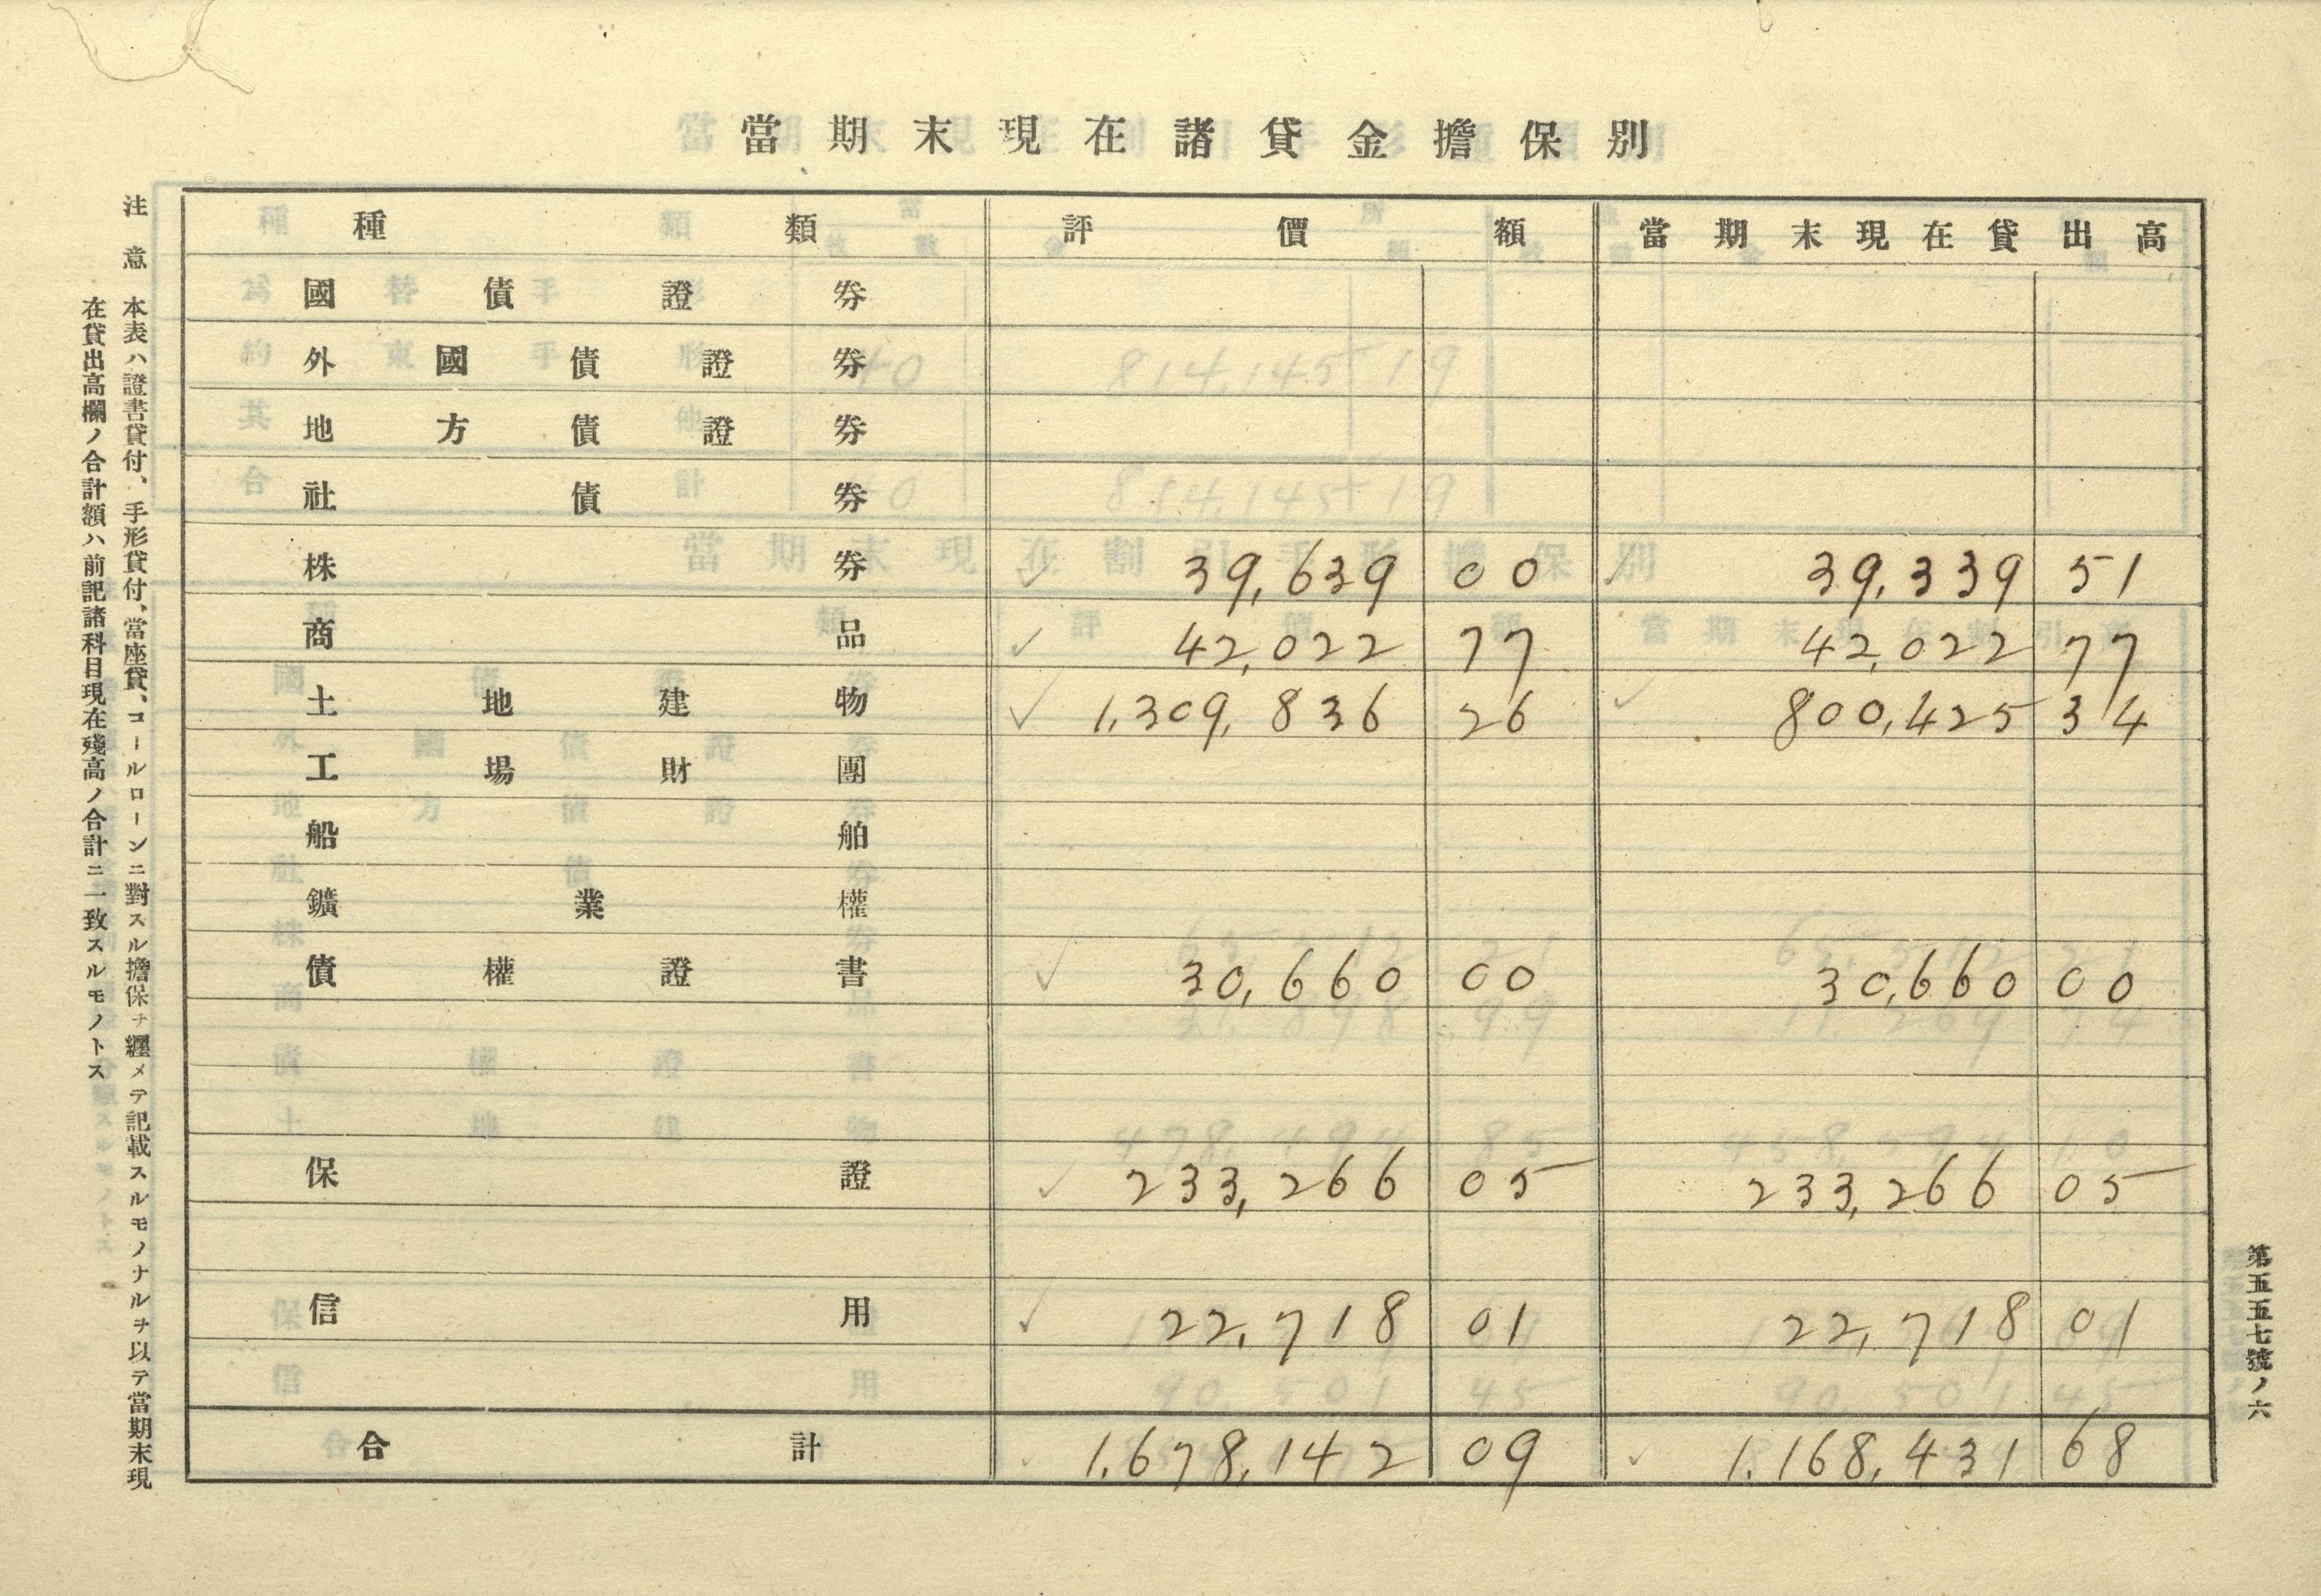 當期末現在諸貸金擔保別
種類 評價額 當期末現在貸出高
國債證券
外國債證券
地方債證券
社債券
株券 39,639 00 39,339 51
商品 42,022 77 42,022 77
土地建物 1,309,836 26 800,425 34
工場財團
船舶
鑛業權
債權證書 30,660 00 30,660 00
保證 233,266 05 233,266 05
信用 22,718 01 22,718 01
合計 1,678,142 09 1,168,431 68
第五五七號ノ六
注意 本表ハ證書貸付、手形貸付、當座貸、コールローンニ對スル擔保ヲ纒メテ記載スルモノナルヲ以テ當期末現
在貸出高欄ノ合計額ハ前記諸科目現在殘高ノ合計ニ一致スルモノトス